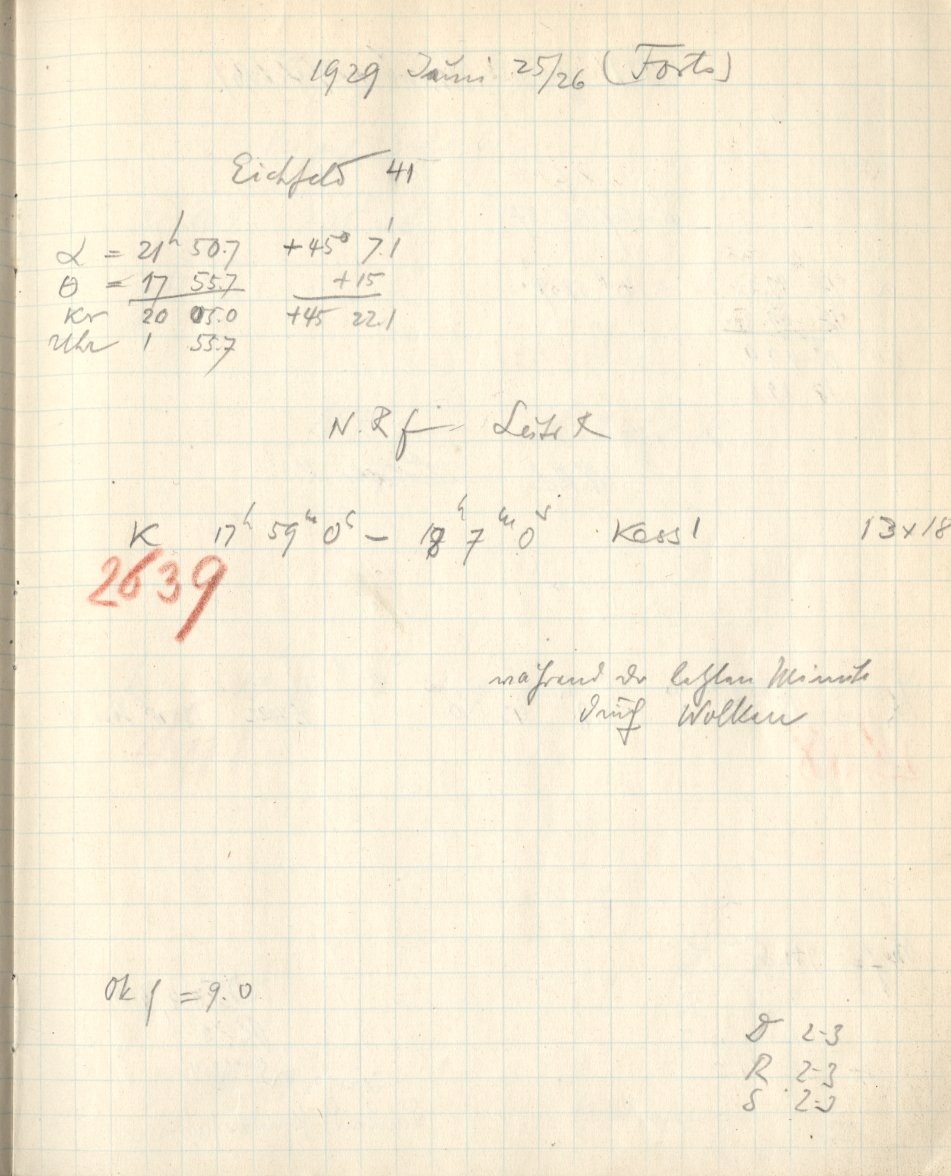 1929 Juni 25/26 (Forts)
Eichfeld 41
α = 21ʰ 50.7 +45° 7.'1
θ = 17 55.7 +15
Kr 20 05.0 +45 22.1
Uhr 1 55.7
N. R f
K 17ʰ 59ᵐ 0ˢ – 18ʰ 7ᵐ 0ˢ Kass 1 13x18
2639
während der letzten Minute
durch Wolken
Ok f = 9.0
D 2-3
R 2-3
S 2-3